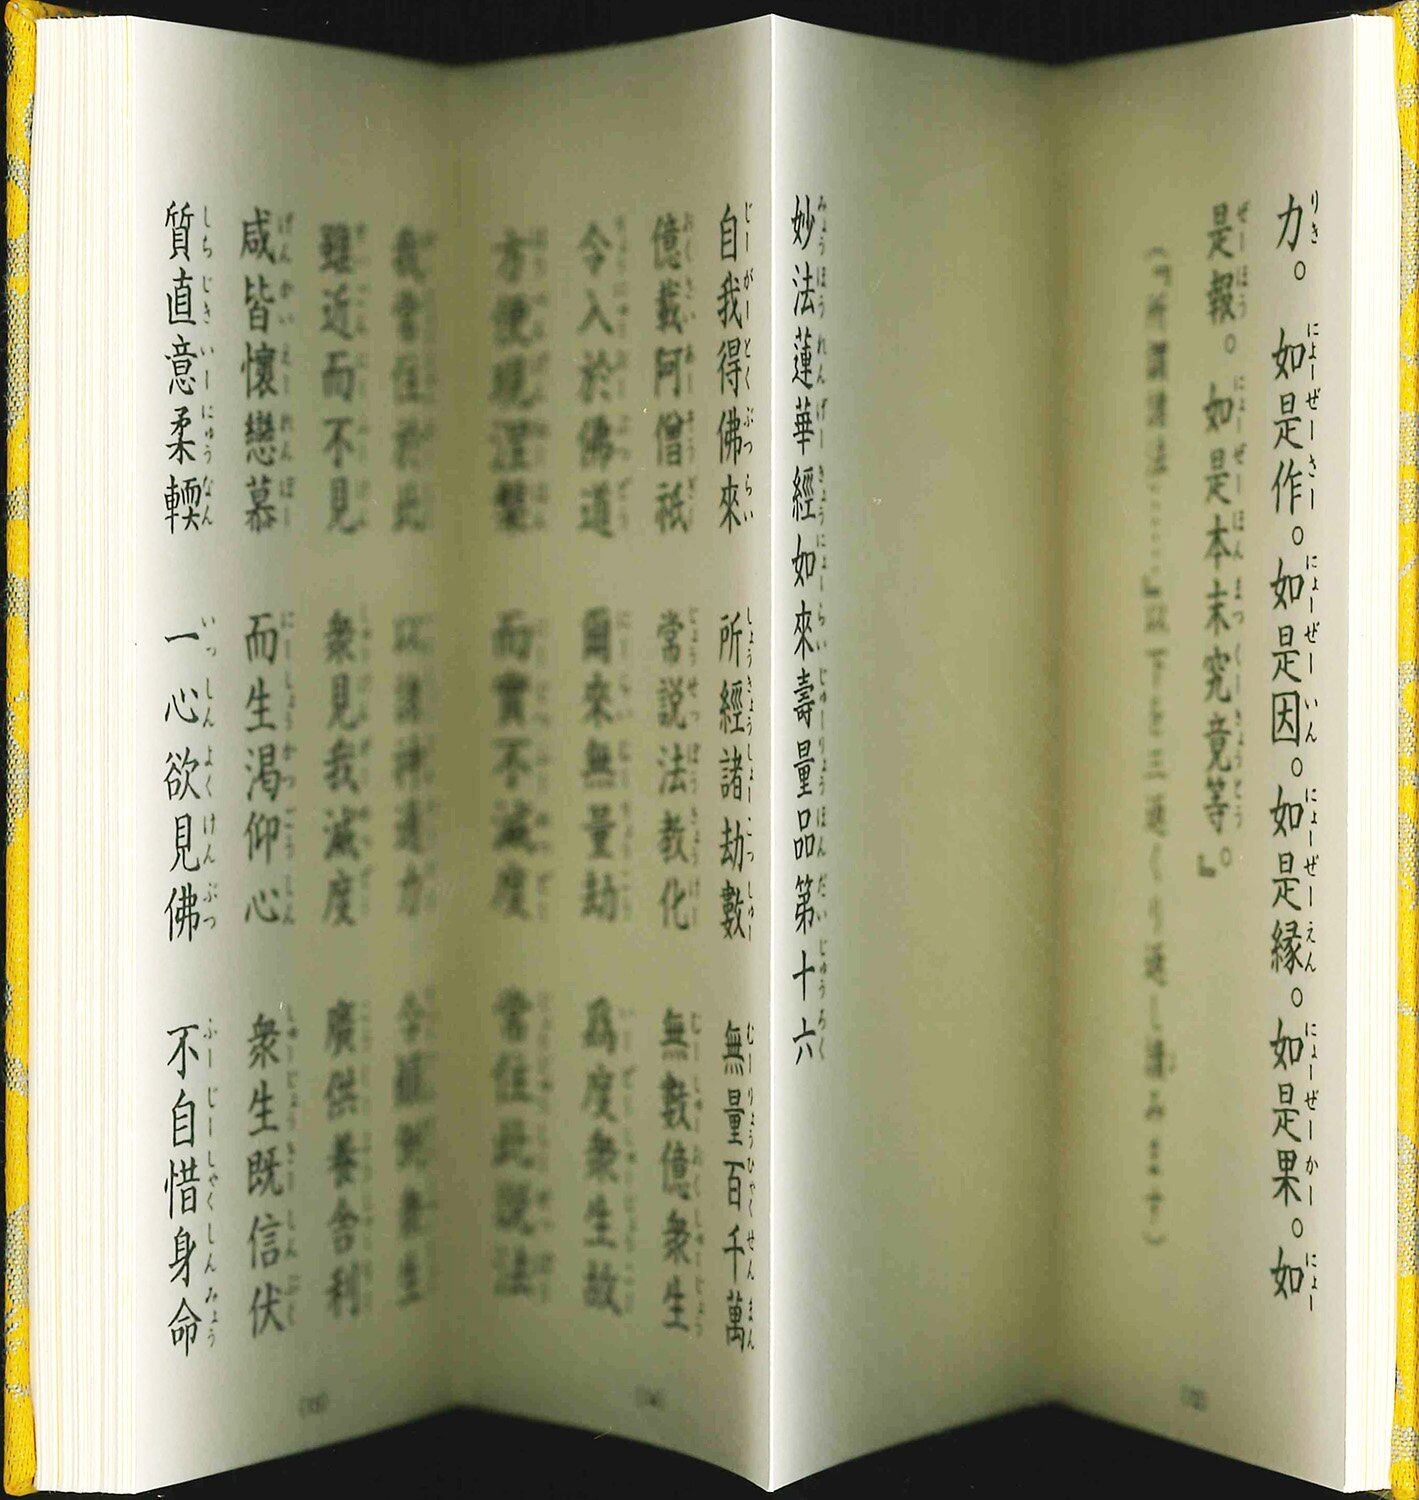 力。如是作。如是因。如是縁。如是果。如
是報。如是本末究竟等。』
(『所謂諸法……』以下を三遍くり返し讀みます)
妙法蓮華經如來壽量品第十六
自我得佛來 所經諸劫數 無量百千萬
億載阿僧祇 常説法教化 無數億衆生
令入於佛道 爾來無量劫 爲度衆生故
方便現涅槃 而實不滅度 常住此説法
我常住於此 以諸神通力 令顛倒衆生
雖近而不見 衆見我滅度 廣供養舍利
咸皆懷戀慕 而生渇仰心 衆生既信伏
質直意柔輭 一心欲見佛 不自惜身命